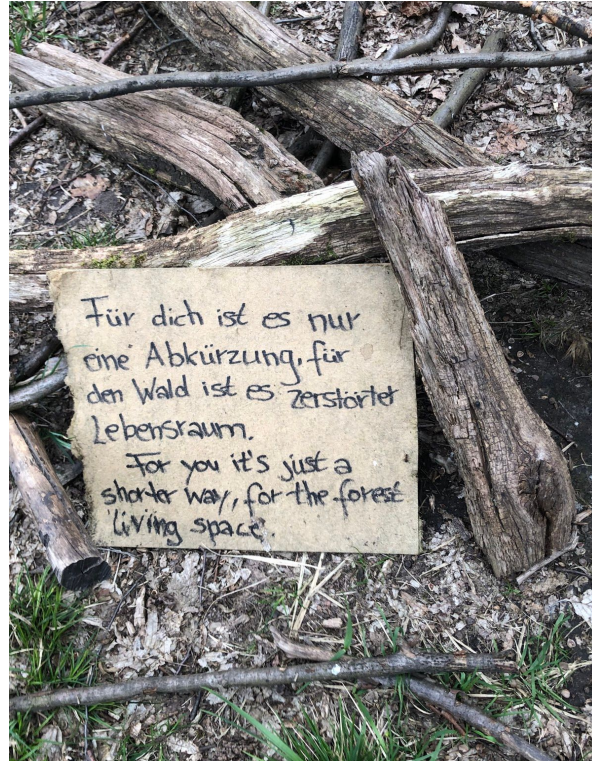 Für dich ist es nur
eine Abkürzung, für
den Wald ist es zerstörter
Lebensraum.
For you it's just a
shorter way, for the forest
living space.